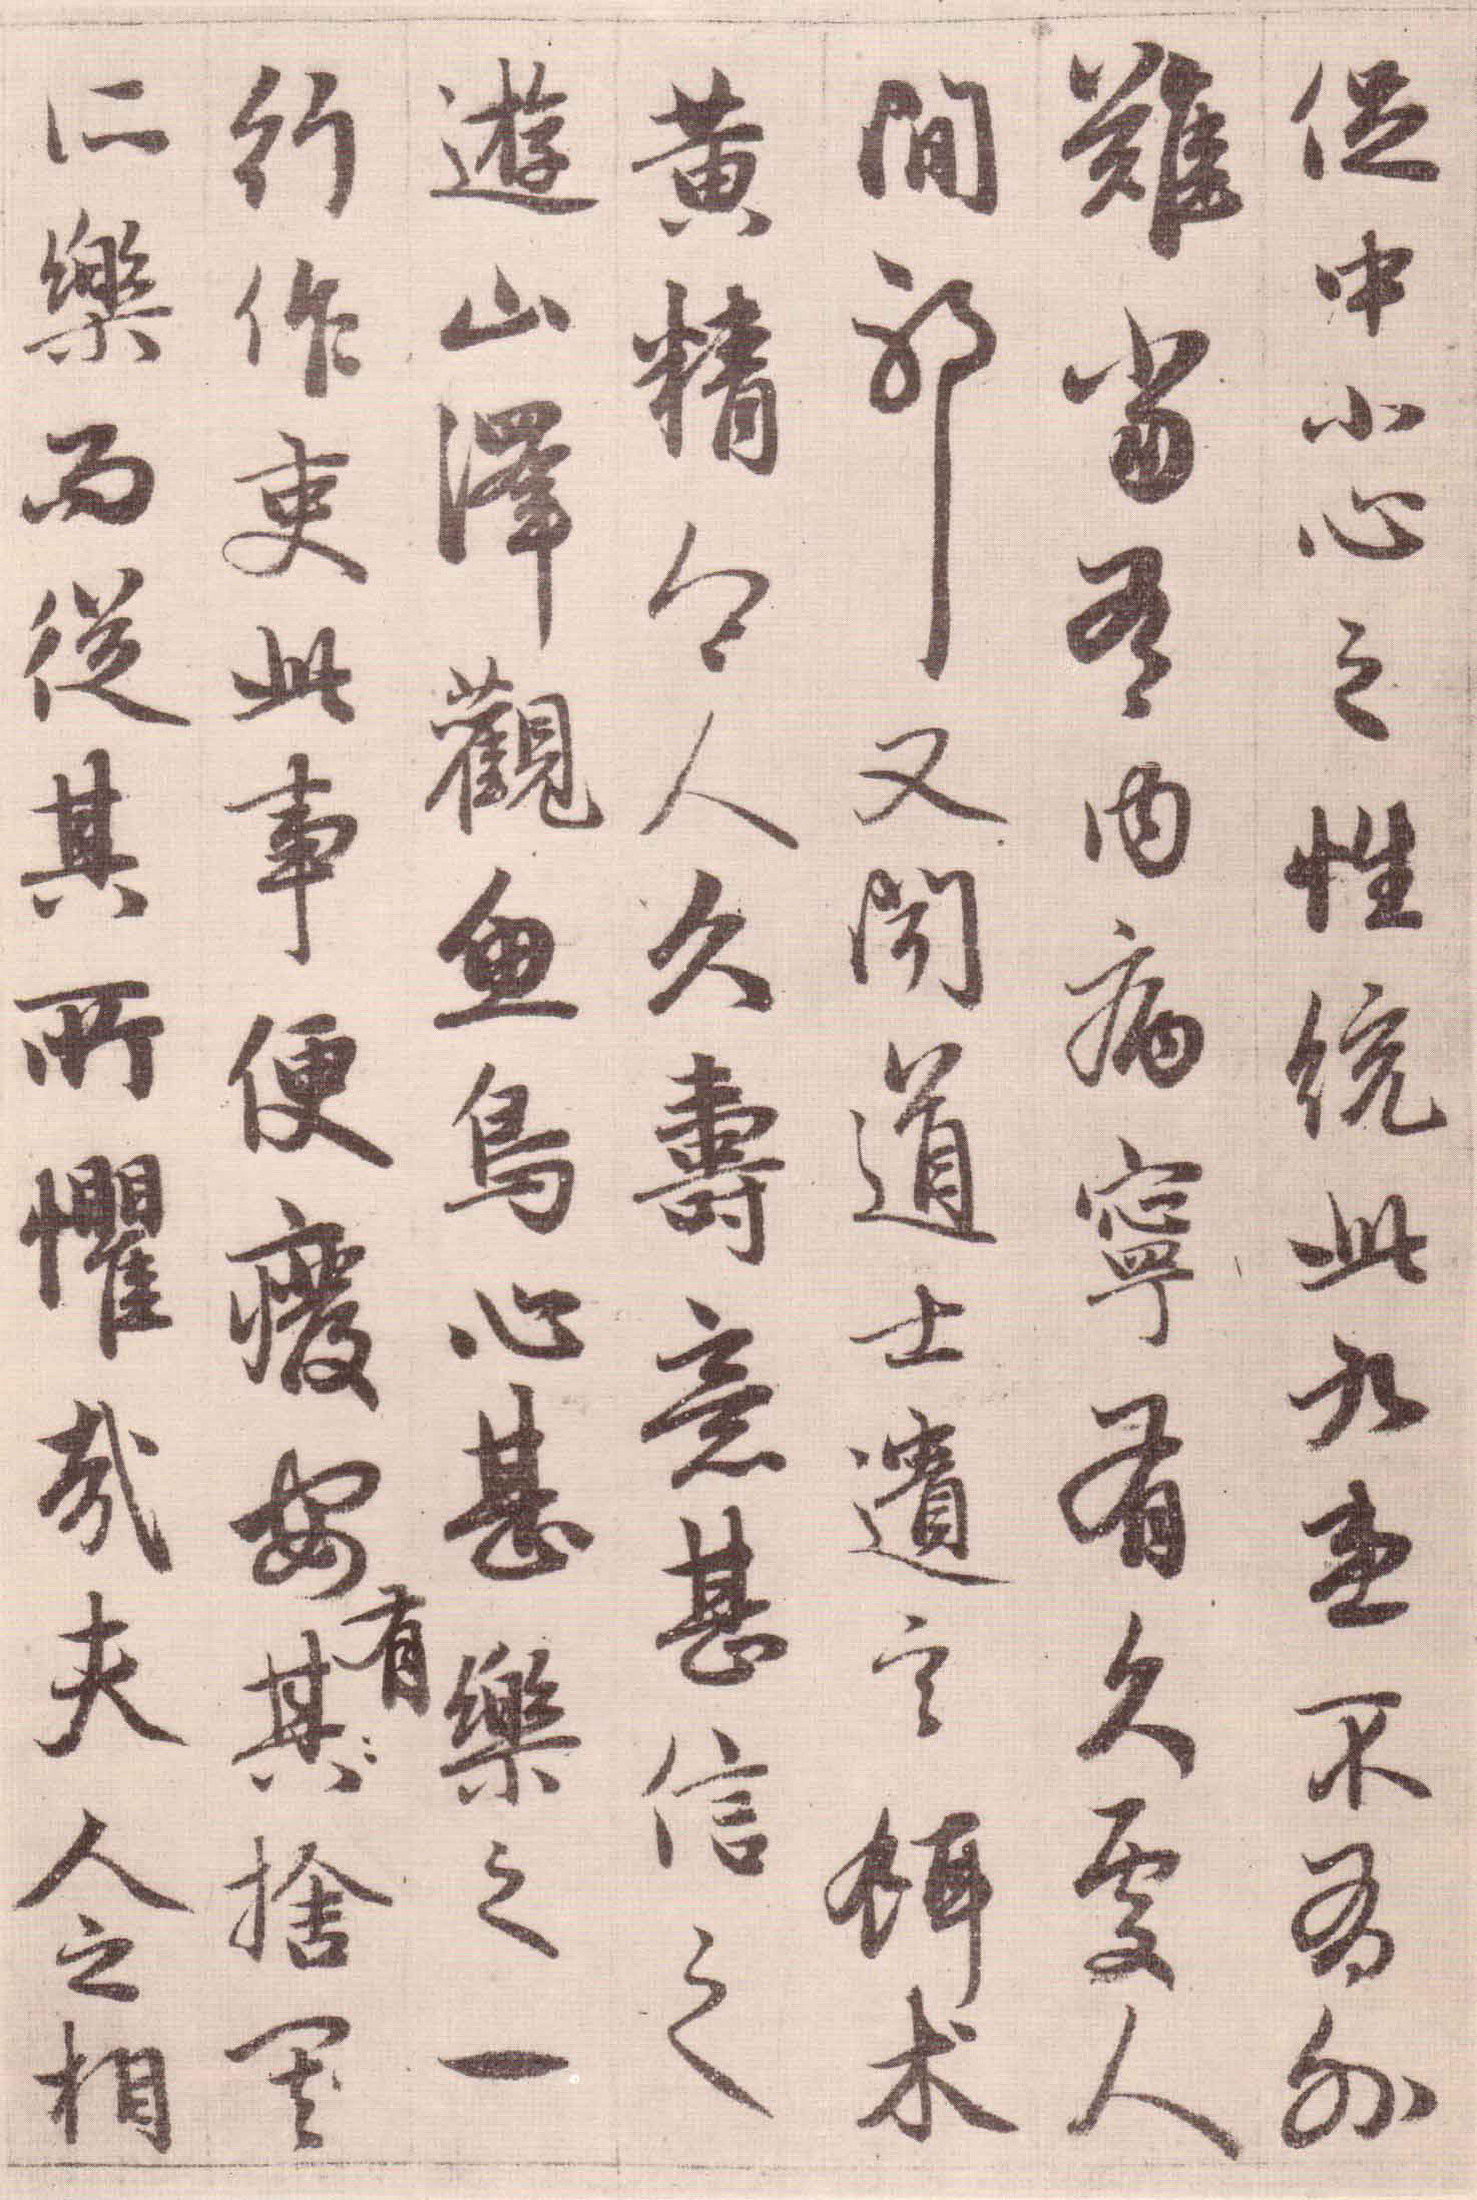 促中小心之性統此九患不有外
難當有内病寧有久處人
間邪又聞道士遺言餌术
黄精令人久壽意甚信之
遊山澤觀魚鳥心甚樂之一
行作吏此事便廢安其有捨其
所樂而從其所懼哉夫人之相